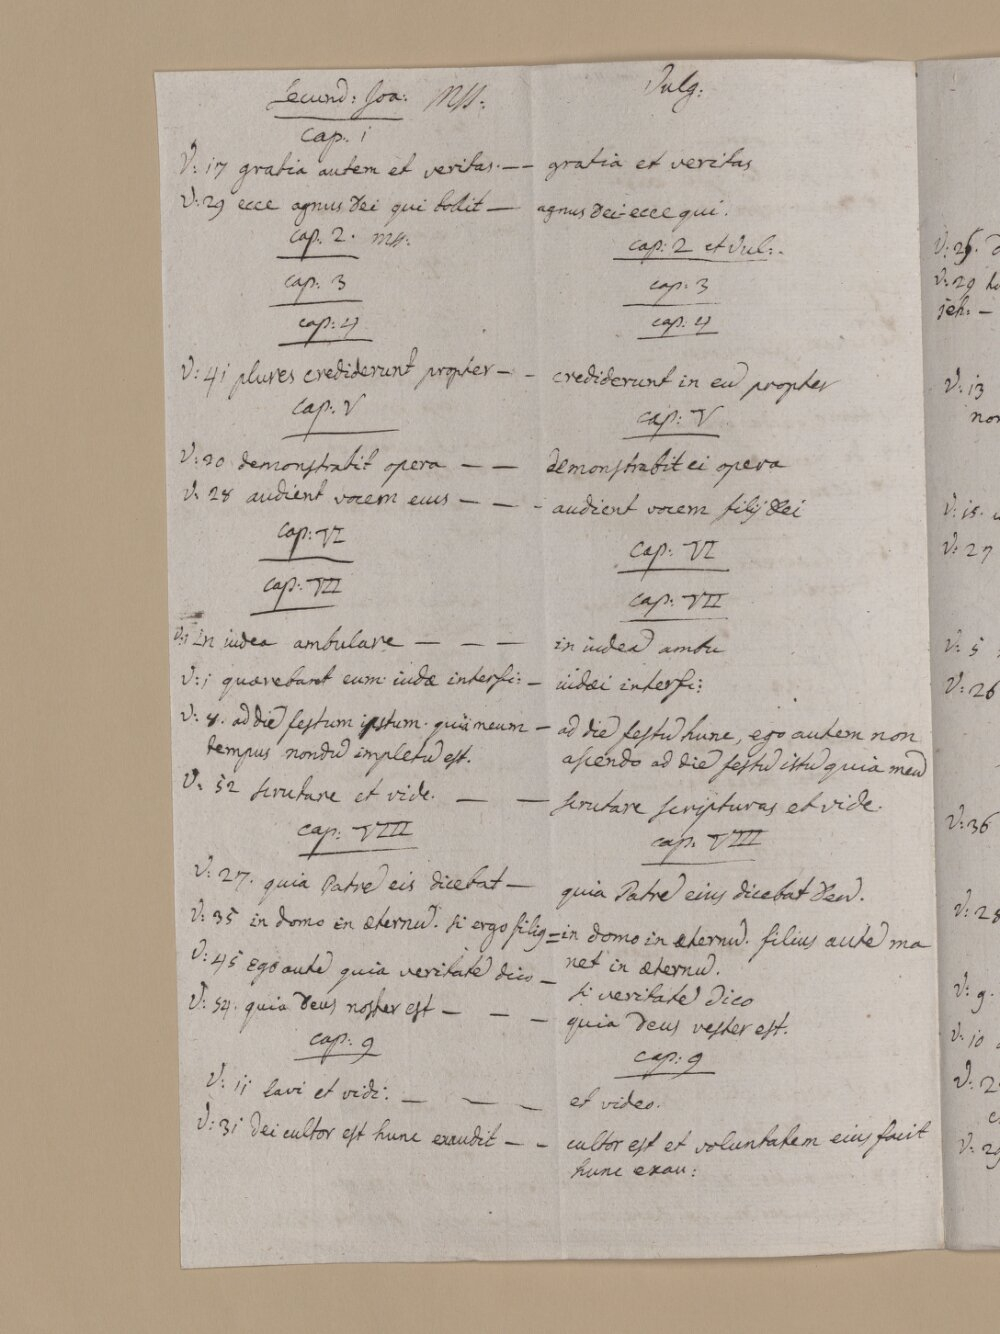 Secund: Joa: MSS: Vulg:
Cap. 1
V: 17 gratia autem et veritas. — — gratia et veritas
V: 29 ecce agnus Dei qui tollit — agnus Dei ecce qui.
Cap. 2. MSS. Cap: 2 et Vul:.
Cap: 3 Cap: 3
Cap: 4 Cap: 4
V: 41 plures crediderunt propter — - crediderunt in eū propter
Cap: V Cap: V
V: 20 demonstrabit opera — — demonstrabit ei opera
V. 28 audient vocem eius — — - audient vocem filij Dei
Cap: VI Cap: VI
Cap: VII Cap: VII
V:1 in iudea ambulare — — — in iudeā ambu
V: 1 quærebant eum iudæ interfi: — iudæi interfi:
V: 8. ad diē festum ipstum. quia meum — ad diē festū hunc, ego autem non
tempus nondū impletū est. ascendo ad diē festū istū quia meū
V. 52 scrutare et vide. — — scrutare scripturas et vide.
Cap: VIII Cap. VIII
V: 27. quia Patrē eis dicebat — quia Patrē eius dicebat Deū.
V: 35 in domo in æternū. si ergo filiq = in domo in æternū. filius autē ma
net in æternū.
V: 45 Ego autē quia veritatē dico — si veritatē dico
V: 54. quia Deus noster est — — — quia Deus vester est.
Cap: 9 Cap: 9
V: 11 lavi et vidi: — — — et video.
V: 31 Dei cultor est hunc exaudit — - cultor est et voluntatem eius facit
hunc exau:
V: 29
jeh: —
V: 13
non
V: 15.
V: 27
V: 5
V: 26
V: 36
V: 28
V: 9.
V: 10
V: 29